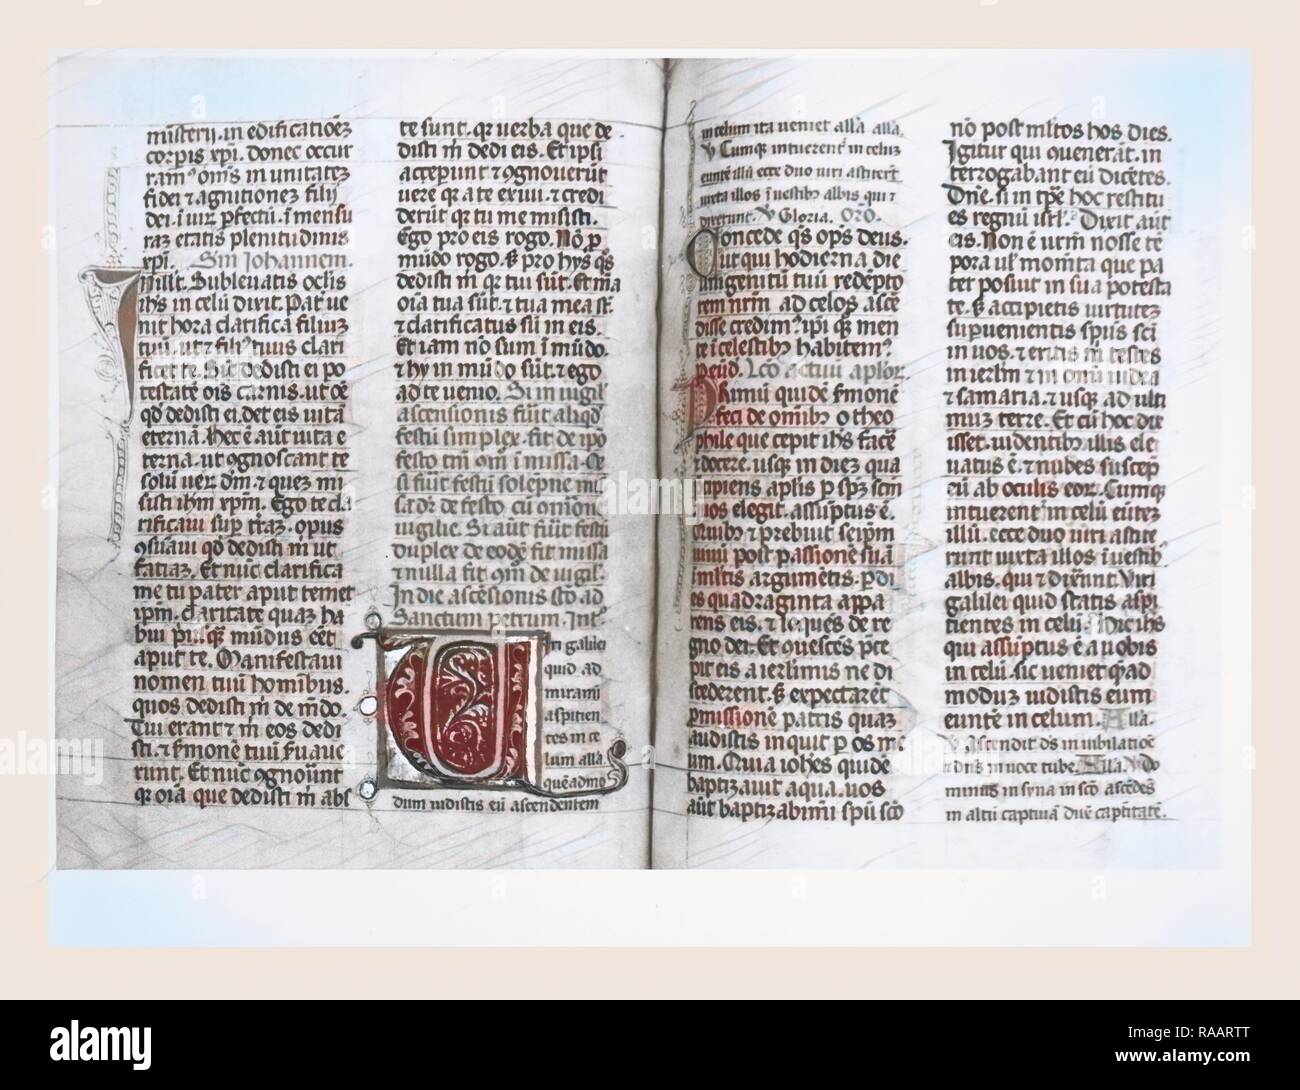 misterij. in edificatioēz
corpis xp̄i. donec occur
ram⁹ om̄s in unitatez
fidei ⁊ agnitionez filij
dei. ī uiꝝ ꝑfectū. ī mensu
raz etatis plenitudinis
xp̄i. Sm̄ Iohannem.
illis. Subleuatis oclis
ih̄s in celū dixit. Pať ue
nit hora clarifica filiuz
tuū. ut ⁊ fili⁹ tuus clari
ficet te. Sic̄ dedisti ei po
testatē ois carnis. ut oē
qd̄ dedisti ei. det eis uitā
eternā. hec ē aūt uita e
terna. ut ꝯgnoscant te
solū ueꝝ dm̄. ⁊ quez mi
sisti ih̄m xp̄m. Ego te cla
rificaui suꝑ t̄raz. opus
ꝯsūaui qd̄ dedisti m̄ ut
faciaz. Et nūc clarifica
me tu pater aput temet
ip̄m. claritate quaz ha
bui p̄usqȝ mūdus eēt
aput te. Manifestaui
nomen tuū homībus.
quos dedisti m̄ de mūdo.
Tui erant ⁊ m̄ eos dedi
sti. ⁊ s̄monē tuū s̄uaue
runt. Et nūc ꝯgnouūnt
qȝ oīa que dedisti m̄ abs
te sunt. qȝ uerba que de
disti m̄ dedi eis. Et ipsi
acceperunt ⁊ ꝯgnouerūt
uere qȝ a te exiui. ⁊ credi
derūt qȝ tu me misisti.
Ego pro eis rogo. Nō ꝓ
mūdo rogo. sꝫ pro hys q̄s
dedisti m̄ qȝ tui sūt. Et m̄a
oīa tua sūt. ⁊ tua mea sť.
⁊ clarificatus sū in eis.
Et iam nō sum ī mūdo.
⁊ hy in mūdo sūt. ⁊ ego
ad te uenio. Si in uigil'
ascensionis fūit aliqd̄
festū simplex. fit de ipo
festo tm̄ ꝯm̄ ī missa. Se
si fuit festū solepne mi
sa dr̄ de festo. cū ꝯmōne
uigilie. Si aūt fūit festū
duplex de eodē fit missa
⁊ nulla fit ꝯm̄ de uigil'.
In die ascēsionis stō ad
Sanctum petrum. Int'.
Iri galilei
quid ad
miramī
aspitien
tes in ce
lum alla
quēadmo
dum uidistis eū ascendentem
in celum ita ueniet alla alla.
℣ Cumqȝ intuerent̄ in celuz
euntē illū ecce duo uiri astiterť
iuxta illos ī uestibȝ albis qui ⁊
dixerunt. ℣ Gloria. Oro.
Concede q̄s op̄s deus.
ut qui hodierna die
unigenitū tuū redēpto
rem nr̄m ad celos ascē
disse credim⁹. ip̄i qȝ men
te ī celestibȝ habitem⁹.
P eūd̄. Lc̄o actuū aplor̄.
Rimū quidē s̄monē
feci de omībȝ o theo
phile que cepit ih̄s facē
⁊ docere. usqȝ in diez qua
cipiens aplis ꝑ sp̄ꝫ scm̄
quos elegit. assūptus ē.
Quibȝ ⁊ prebuit seipm̄
uiuū post passionē suā
ī mltis argumētis. ꝑ di
es quadraginta appa
rens eis. ⁊ loqūes de re
gno dei. Et quescēs p̄ce
pit eis a ierlimis ne di
scederent. sꝫ expectarēt
ꝓmissionē patris quaz
audistis inquit ꝑ os me
um. Quia ioh̄es quidē
baptizauit aqua. uos
aūt baptizabimī spū scō
nō post mltos hos dies.
Igitur qui ꝯuenerāt. in
terrogabant eū dicētes.
Dn̄e. si in tp̄e hoc restitu
es regnū isrl'? Dixit aūt
eis. Non ē urm̄ nosse te
pora ul' momt̄a que pa
ter posuit in sua potesta
te. Sꝫ accipietis uirtutez
suꝑuenientis sp̄us sc̄i
in uos. ⁊ eritis m̄ testes
in ierlm̄ ⁊ in omī iudea
⁊ samaria. ⁊ usqȝ ad ulti
muz terre. Et cū hoc dix
isset. uidentibȝ illis ele
uatus ē. ⁊ nubes suscep
eū ab oculis eor̄. Cumqȝ
intuerent̄ in celū eūtez
illū. ecce duo uiri astite
runt iuxta illos ī uestibȝ
albis. qui ⁊ dixerūt. Viri
galilei quid statis aspi
cientes in celū. Hic ih̄s
qui assūptus ē a uobis
in celū. sic ueniet quēad
moduz uidistis eum
euntē in celum. Alla.
℣ Ascendit ds̄ in iubilatiōe
⁊ dn̄s in uoce tube. Alla. ℣ do
minus in syna in scō ascēdēs
in altū captiuā dux̄ captitatē.
alamy
alamy
Image ID: RAARTT
www.alamy.com